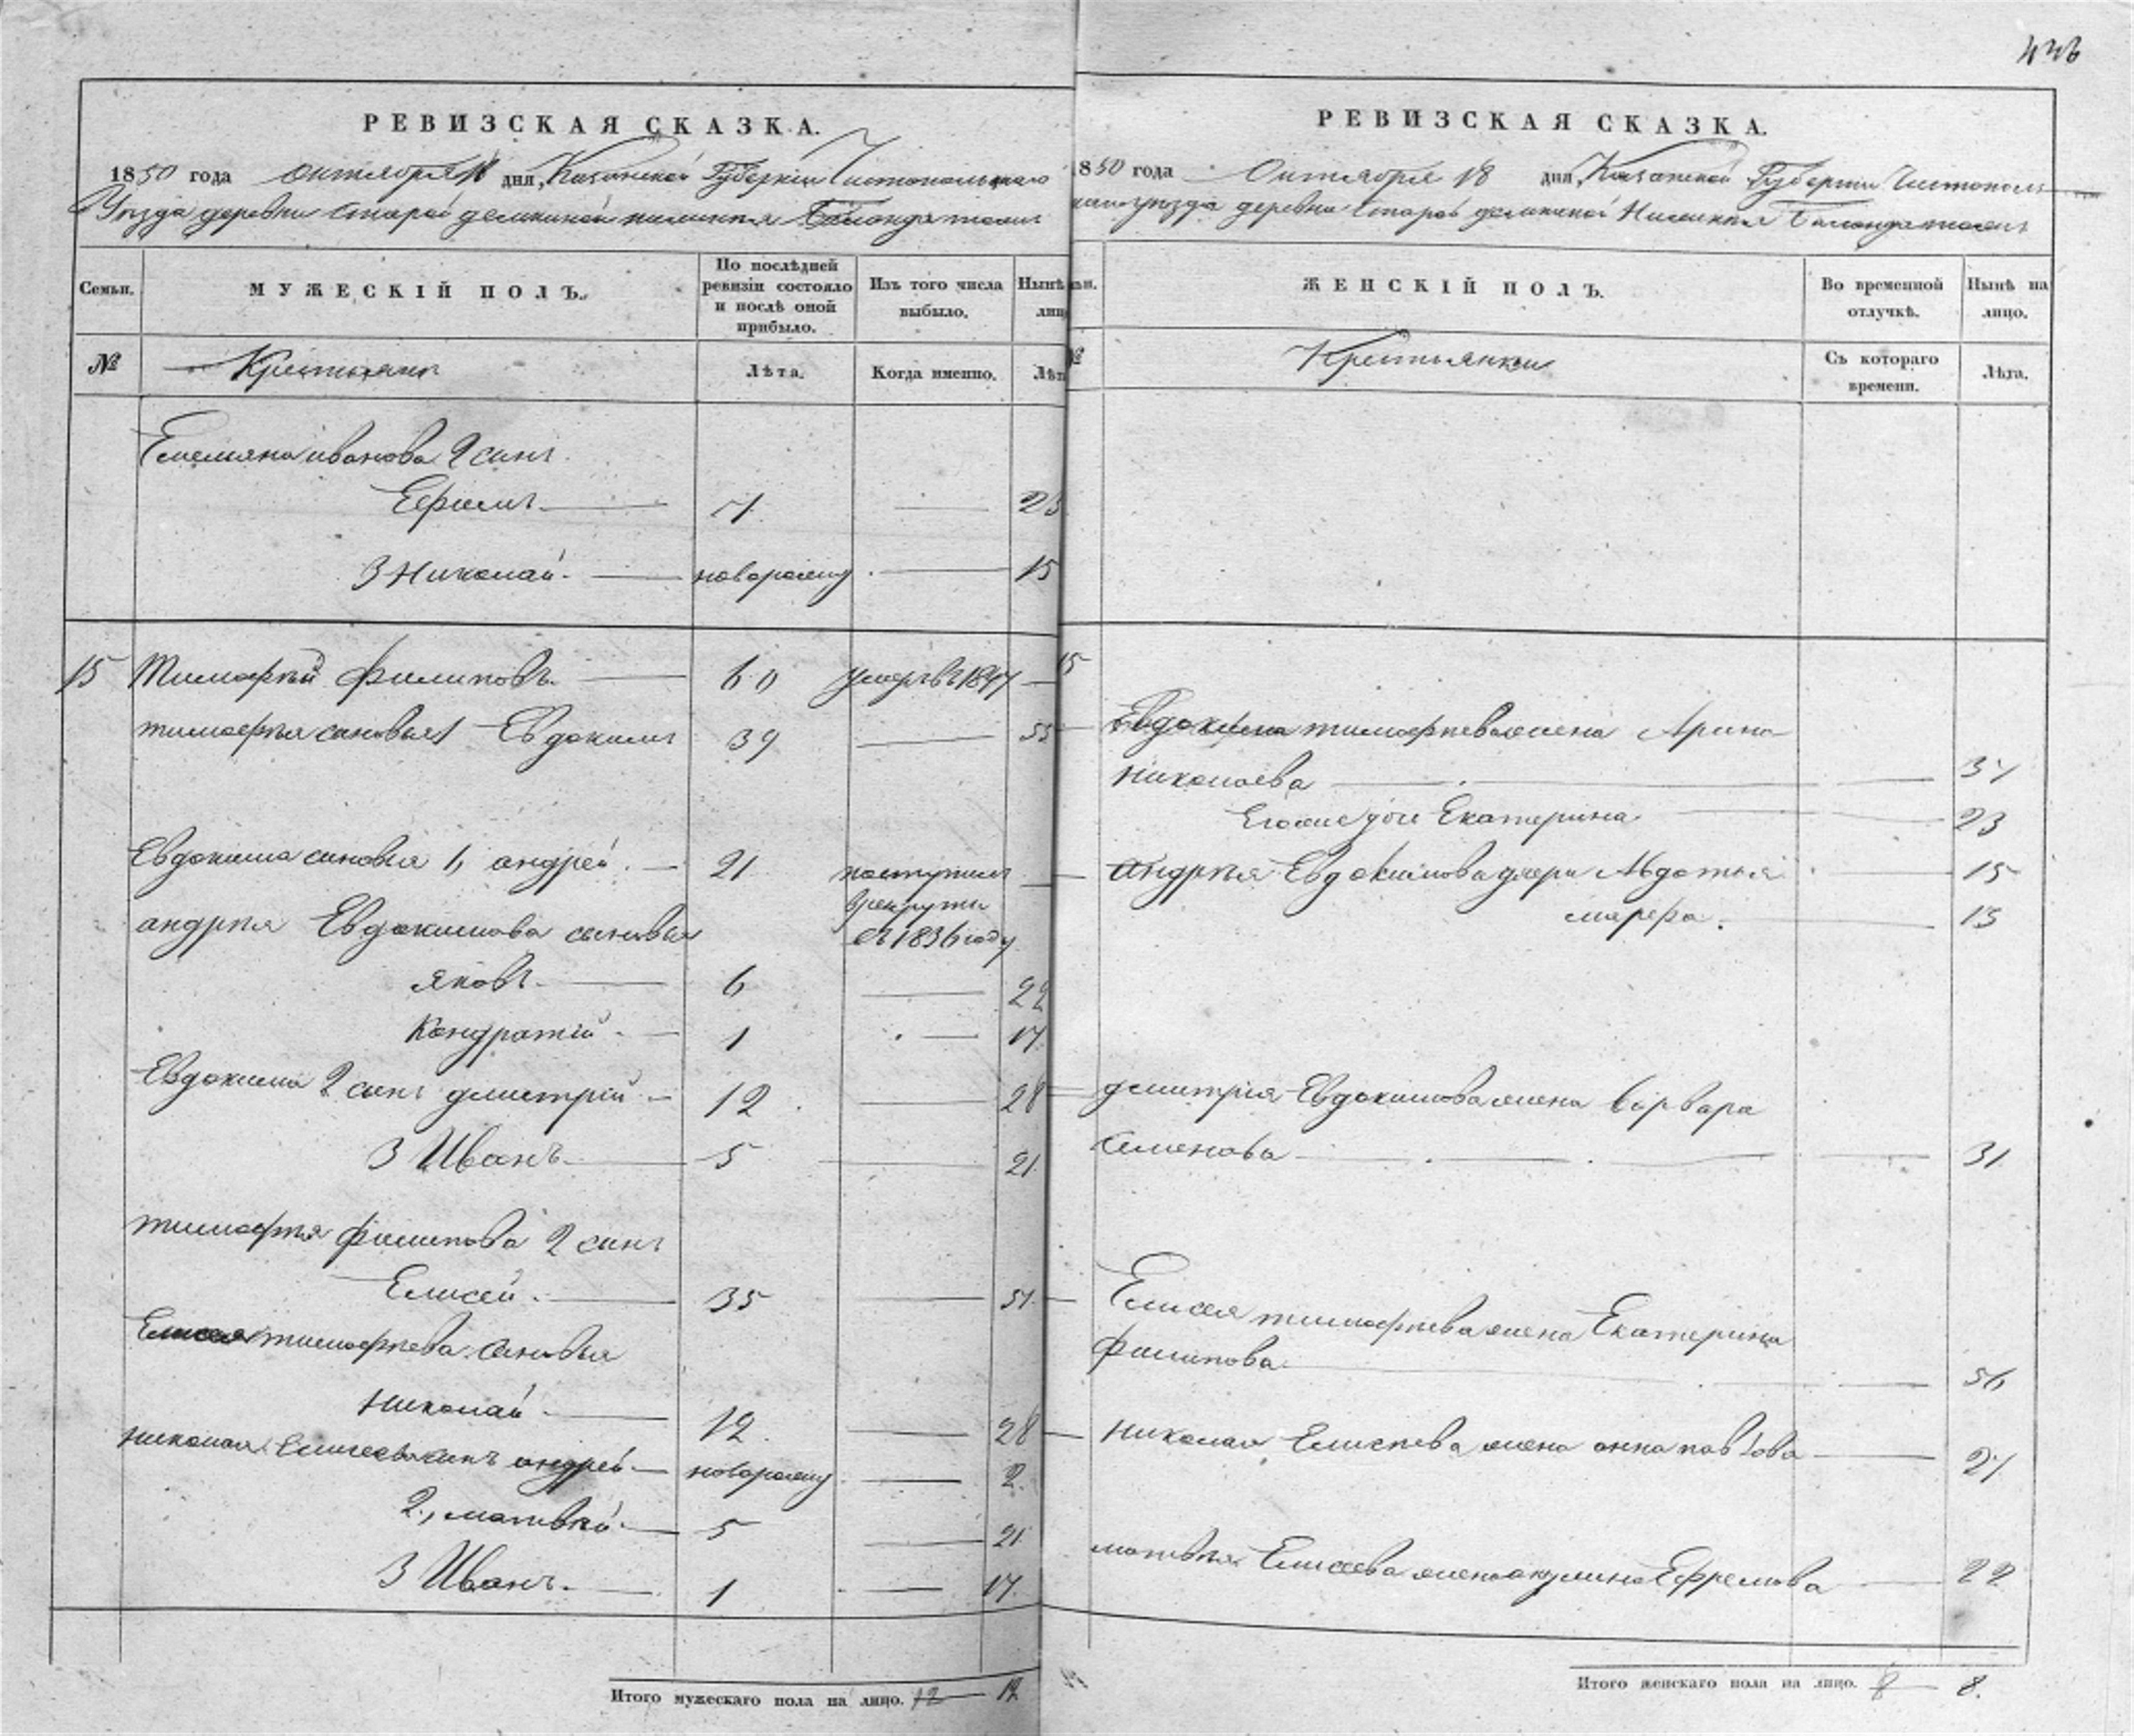 РЕВИЗСКАЯ СКАЗКА.
1850 года октября 18 дня, Казанской Губернии Чистопольскаго
Уезда деревни Старой
Семьи.
МУЖЕСКІЙ ПОЛЪ.
По послѣдней ревизіи состояло и послѣ оной прибыло.
Изъ того числа выбыло.
Нынѣ
лиц
№
Крестьяне
Лѣта.
Когда именно.
Лѣт
Емельяна иванова 2 сынъ
Ефимъ 7 23
3 Николай новорожен 15
15 Тимофѣй Филиповъ 60 умеръ въ 1847
тимофѣя сыновья 1 Евдокимъ 39 55
Евдокима сыновья 1, андрей 21 поступилъ
в рекруты
андрѣя Евдокимова сыновья въ 1836 году
яковъ 6 22
Кондратій 1 17
Евдокима 2 сынъ дмитрій 12 28
3 Иванъ 5 21
тимофѣя филипова 2 сынъ
Елисей 35 51
Елисея тимофѣева сыновья
николай 12 28
николая Елисеева сынъ андрей новорожен 2
2, матвѣй 5 21
3 Иванъ 1 17
Итого мужескаго пола на лицо. 12 12
РЕВИЗСКАЯ СКАЗКА.
850 года Октября 18 дня, Казанской Губернии Чистополь
скаго уезда деревни Старой
ЖЕНСКІЙ ПОЛЪ.
Во временной отлучкѣ.
Нынѣ на лицо.
Крестьянки
Съ котораго времени.
Лѣта.
15
Евдокима тимофѣева жена Арина
николаева 37
Его же дочь Екатерина 23
андрѣя Евдокимова дочери Авдотья 15
марфа 13
дмитрія Евдокимова жена варвара
семенова 31
Елисея тимофѣева жена Екатерина
филипова 56
николая Елисѣева жена анна павлова 27
матвѣя Елисеева жена акулина Ефремова 22
Итого женскаго пола на лицо. 8 8.